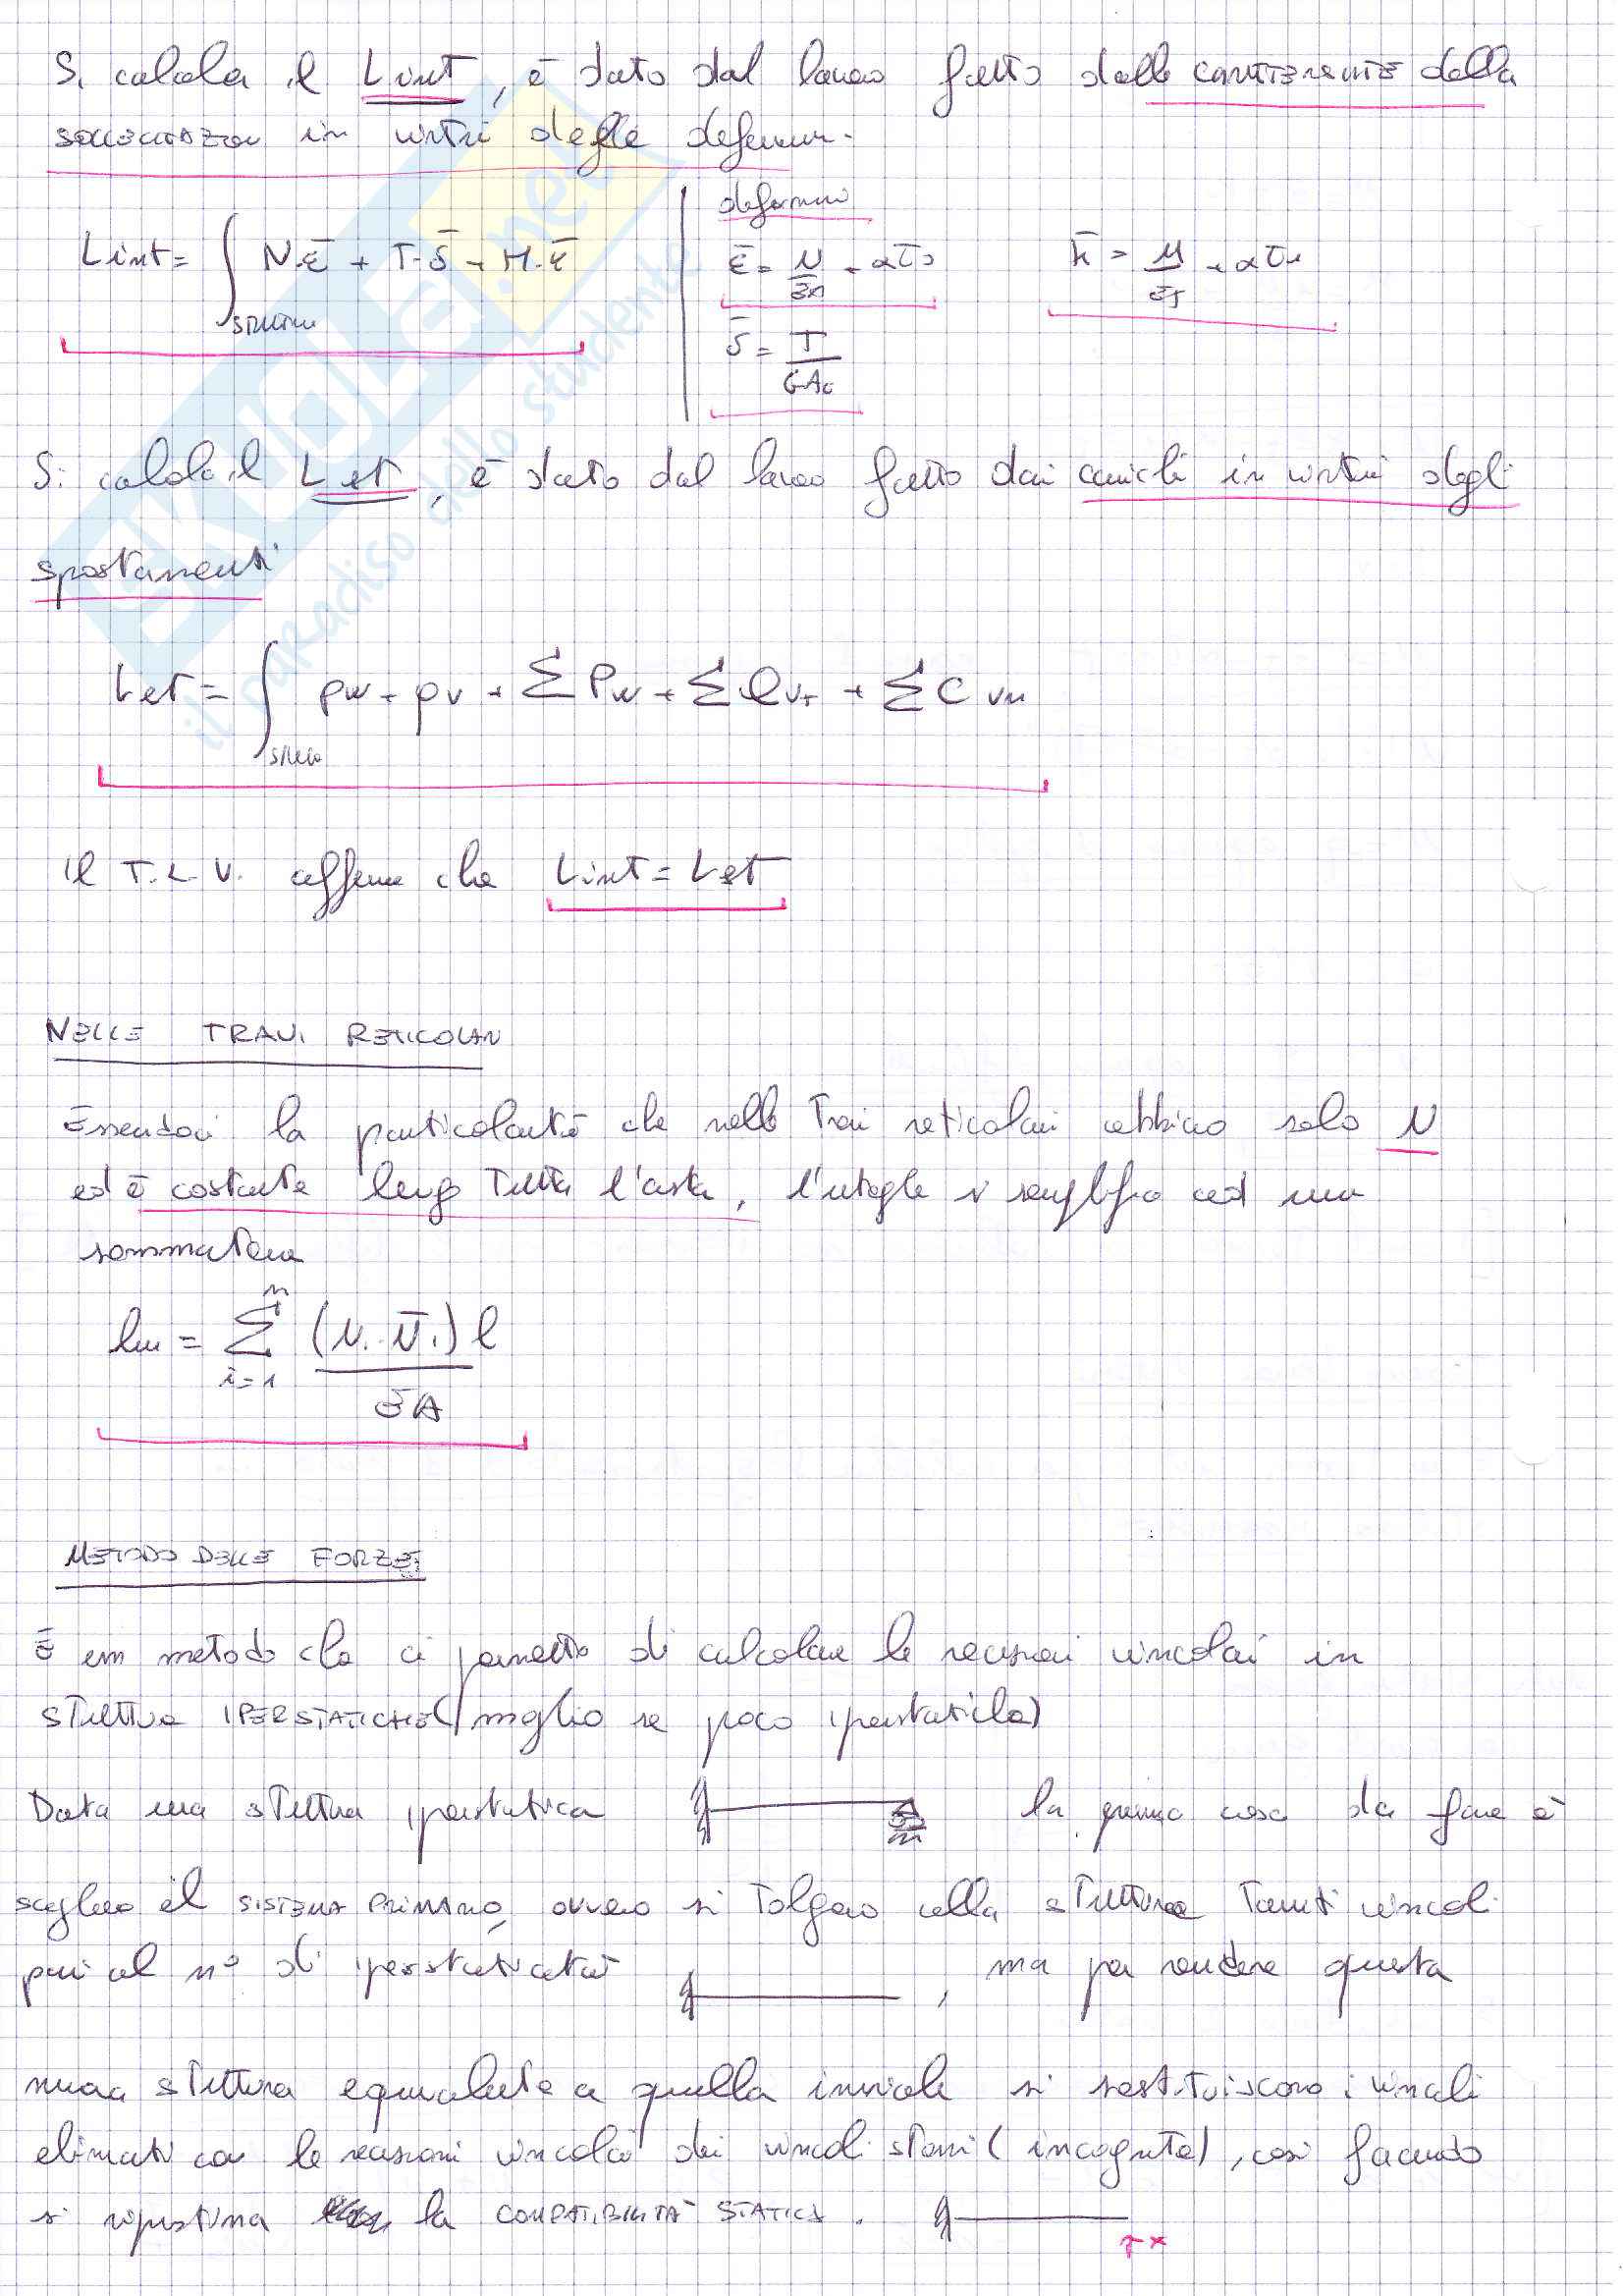 Si calcola il Lint, è dato dal lavoro fatto dalle caratteristiche della
sollecitazioni in virtù delle deformaz.
deformazioni
Lint = ∫ N·ε̄ + T·δ̄ + M·k̄
struttura
ε̄ = N/EA + αT₀
k̄ = M/EI + αT
δ̄ = T/GAc
Si calcola il Lest, è dato dal lavoro fatto dai carichi in virtù degli
spostamenti
Lest = ∫ pw + pv + ΣPw + ΣQv + ΣC
Il T.L.V. afferma che Lint = Lest
NELLE TRAVI RETICOLARI
Essendoci la particolarità che nelle travi reticolari abbiamo solo N
ed è costante lungo tutta l'asta, l'integrale si semplifica ad una
sommatoria
= Σ (Nᵢ·N̄ᵢ)l / EA
n
i=1
METODO DELLE FORZE:
È un metodo che ci permette di calcolare le reazioni vincolari in
strutture IPERSTATICHE (meglio se poco iperstatiche)
Data una struttura iperstatica la prima cosa da fare è
scegliere il SISTEMA PRIMARIO, ovvero si tolgono alla struttura tanti vincoli
pari al n° di iperstaticità , ma per rendere questa
nuova struttura equivalente a quella iniziale si sostituiscono i vincoli
eliminati con le reazioni vincolari dei vincoli stessi (incognite), così facendo
si ripristina la COMPATIBILITÀ STATICA.
x
SKUOLA.net
il paradiso dello studente